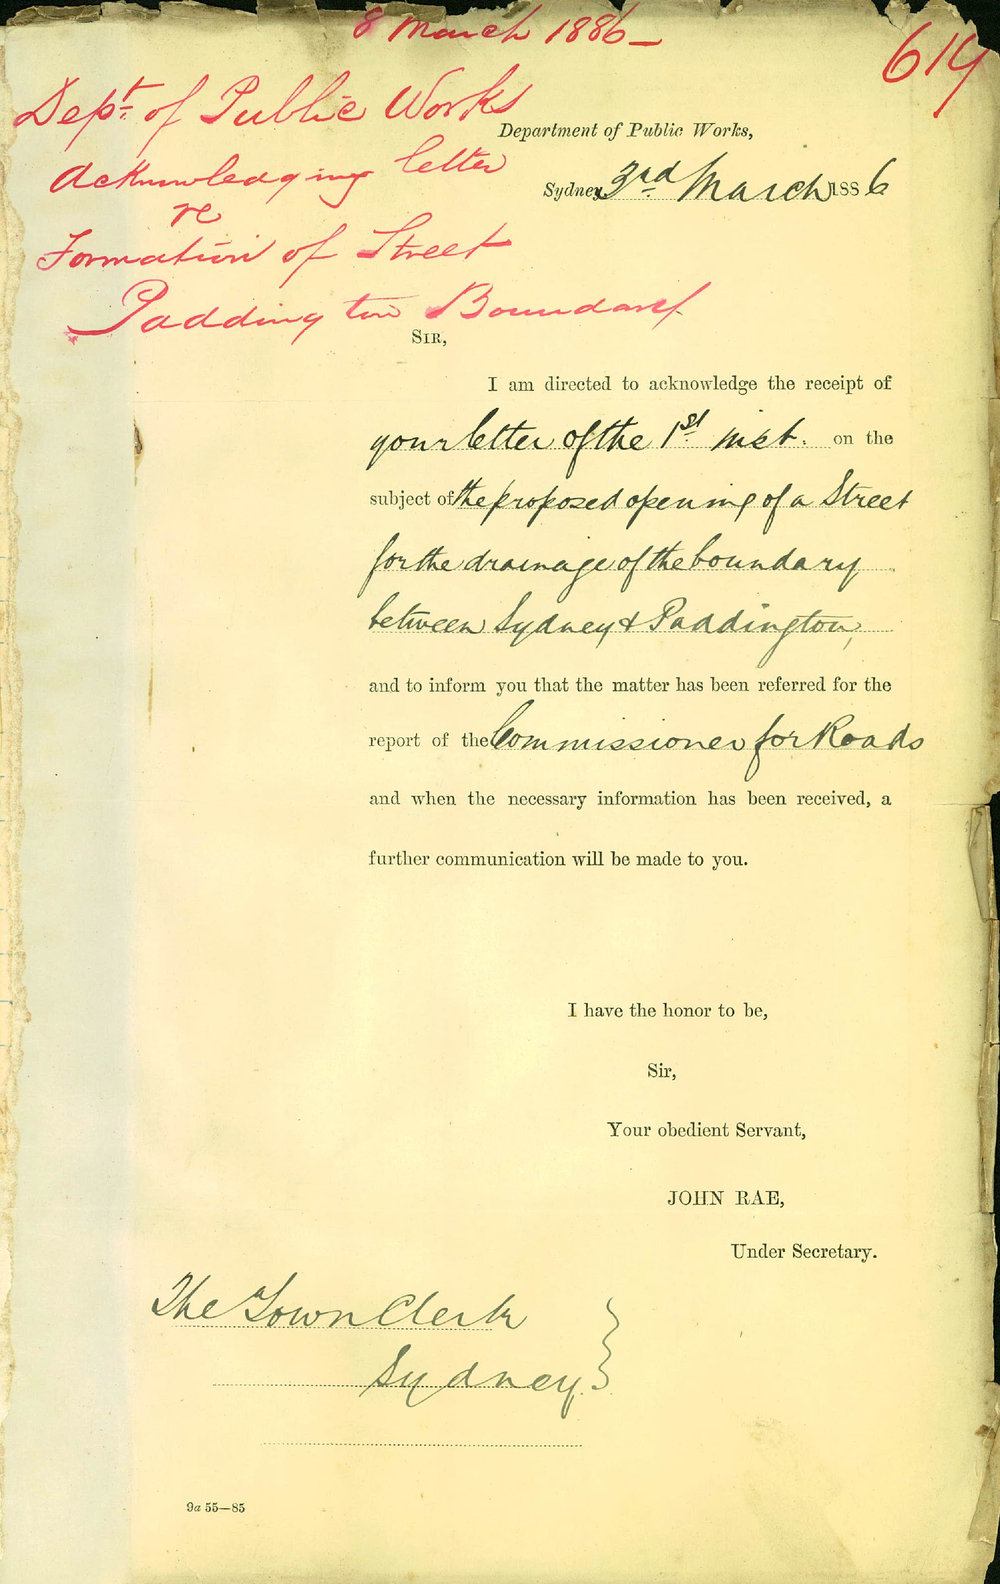 8 March 1886 —
619
Dept. of Public Works
Acknowledging letter
re
Formation of Street
Paddington Boundary
Department of Public Works,
Sydney, 3rd March 1886
SIR,
I am directed to acknowledge the receipt of
your letter of the 1st inst. on the
subject of the proposed opening of a Street
for the drainage of the boundary
between Sydney & Paddington,
and to inform you that the matter has been referred for the
report of the Commissioner for Roads
and when the necessary information has been received, a
further communication will be made to you.
I have the honor to be,
Sir,
Your obedient Servant,
JOHN RAE,
Under Secretary.
The Town Clerk
Sydney.
9a 55—85